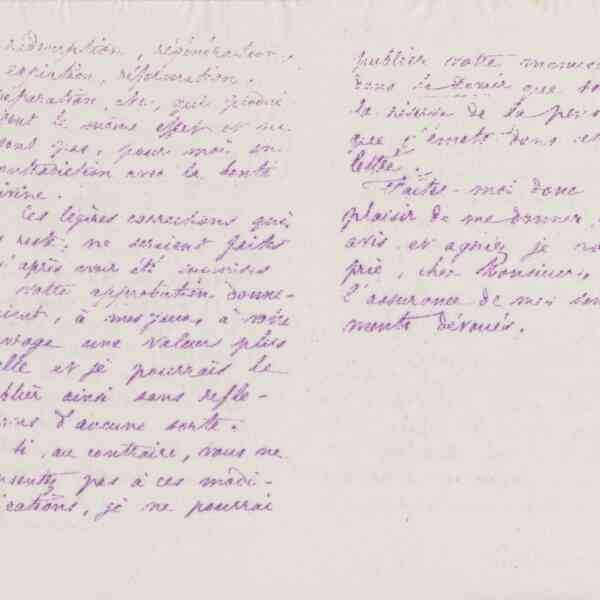 rédemption, régénération,
expiation, réformation,
réparation, etc, qui produi
ront le même effet et ne
sont pas, pour moi en
contradiction avec la bonté
divine.
Ces légères corrections qui,
reste, ne seraient faites
qu'après avoir été soumises
votre approbation donne-
raient, à mes yeux, à votre
ouvrage une valeur plus
réelle et je pourrais le
publier ainsi sans réfle-
xions d'aucune sorte.
Si, au contraire, vous ne
consentez pas à ces modi-
fications, je ne pourrai
publier votre
sous la
la réserve de la
que j'émets dans
lettre.
Faites-moi donc
plaisir de me donner
avis et agréez je
prie, cher Monsieur,
l'assurance de mes sen
ments dévoués.